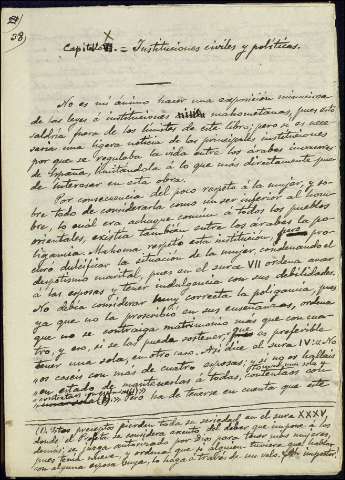 21
38)
X
Capítulo . = Instituciones civiles y políticas.
No es mi ánimo hacer una exposición minuciosa
de las leyes é instituciones mahometanas, pues esto
saldría fuera de los límites de este libro; pero si es nece-
saria una ligera noticia de las principales instituciones
por que se regulaba la vida entre los árabes invasores
de España, limitándola á lo que más directamente pue-
de interesar en esta obra.
Por consecuencia del poco respeto á la mujer, y so-
bre todo de considerarla como un ser inferior al hom-
bre, lo cuál era achaque común á todos los pueblos
orientales, existía también entre los árabes la po-
ligamia. Mahoma respetó esta institución, pro-
curó dulcificar la situación de la mujer condenando el
despotismo marital, pues en el sura VII ordena amar
á las esposas y tener indulgencia con sus debilidades.
No debía considerar muy correcta la poligamia, pues
ya que no la proscribió en sus enseñanzas, ordena
que no se contraiga matrimonio más que con cua-
tro, y eso, si se las puede sostener, que es preferible
tener una sola, en otro caso. Así dice el sura IV: «No
"os caséis con más de cuatro esposas, y si no os halláis
"en estado de mantenerlas á todas, contentaos con
tomad una sola y
(1)» Pero ha de tenerse en cuenta que este
(1). Estos preceptos pierden toda su seriedad en el sura XXXV,
donde el Profeta se considera exento del deber que impone á los
demás; se juzga autorizado por Dios para tener más mujeres,
pues tenía nueve, y ordena que si alguien tuviere que hablar
con alguna esposa suya, lo haga á través de un velo. impostor!